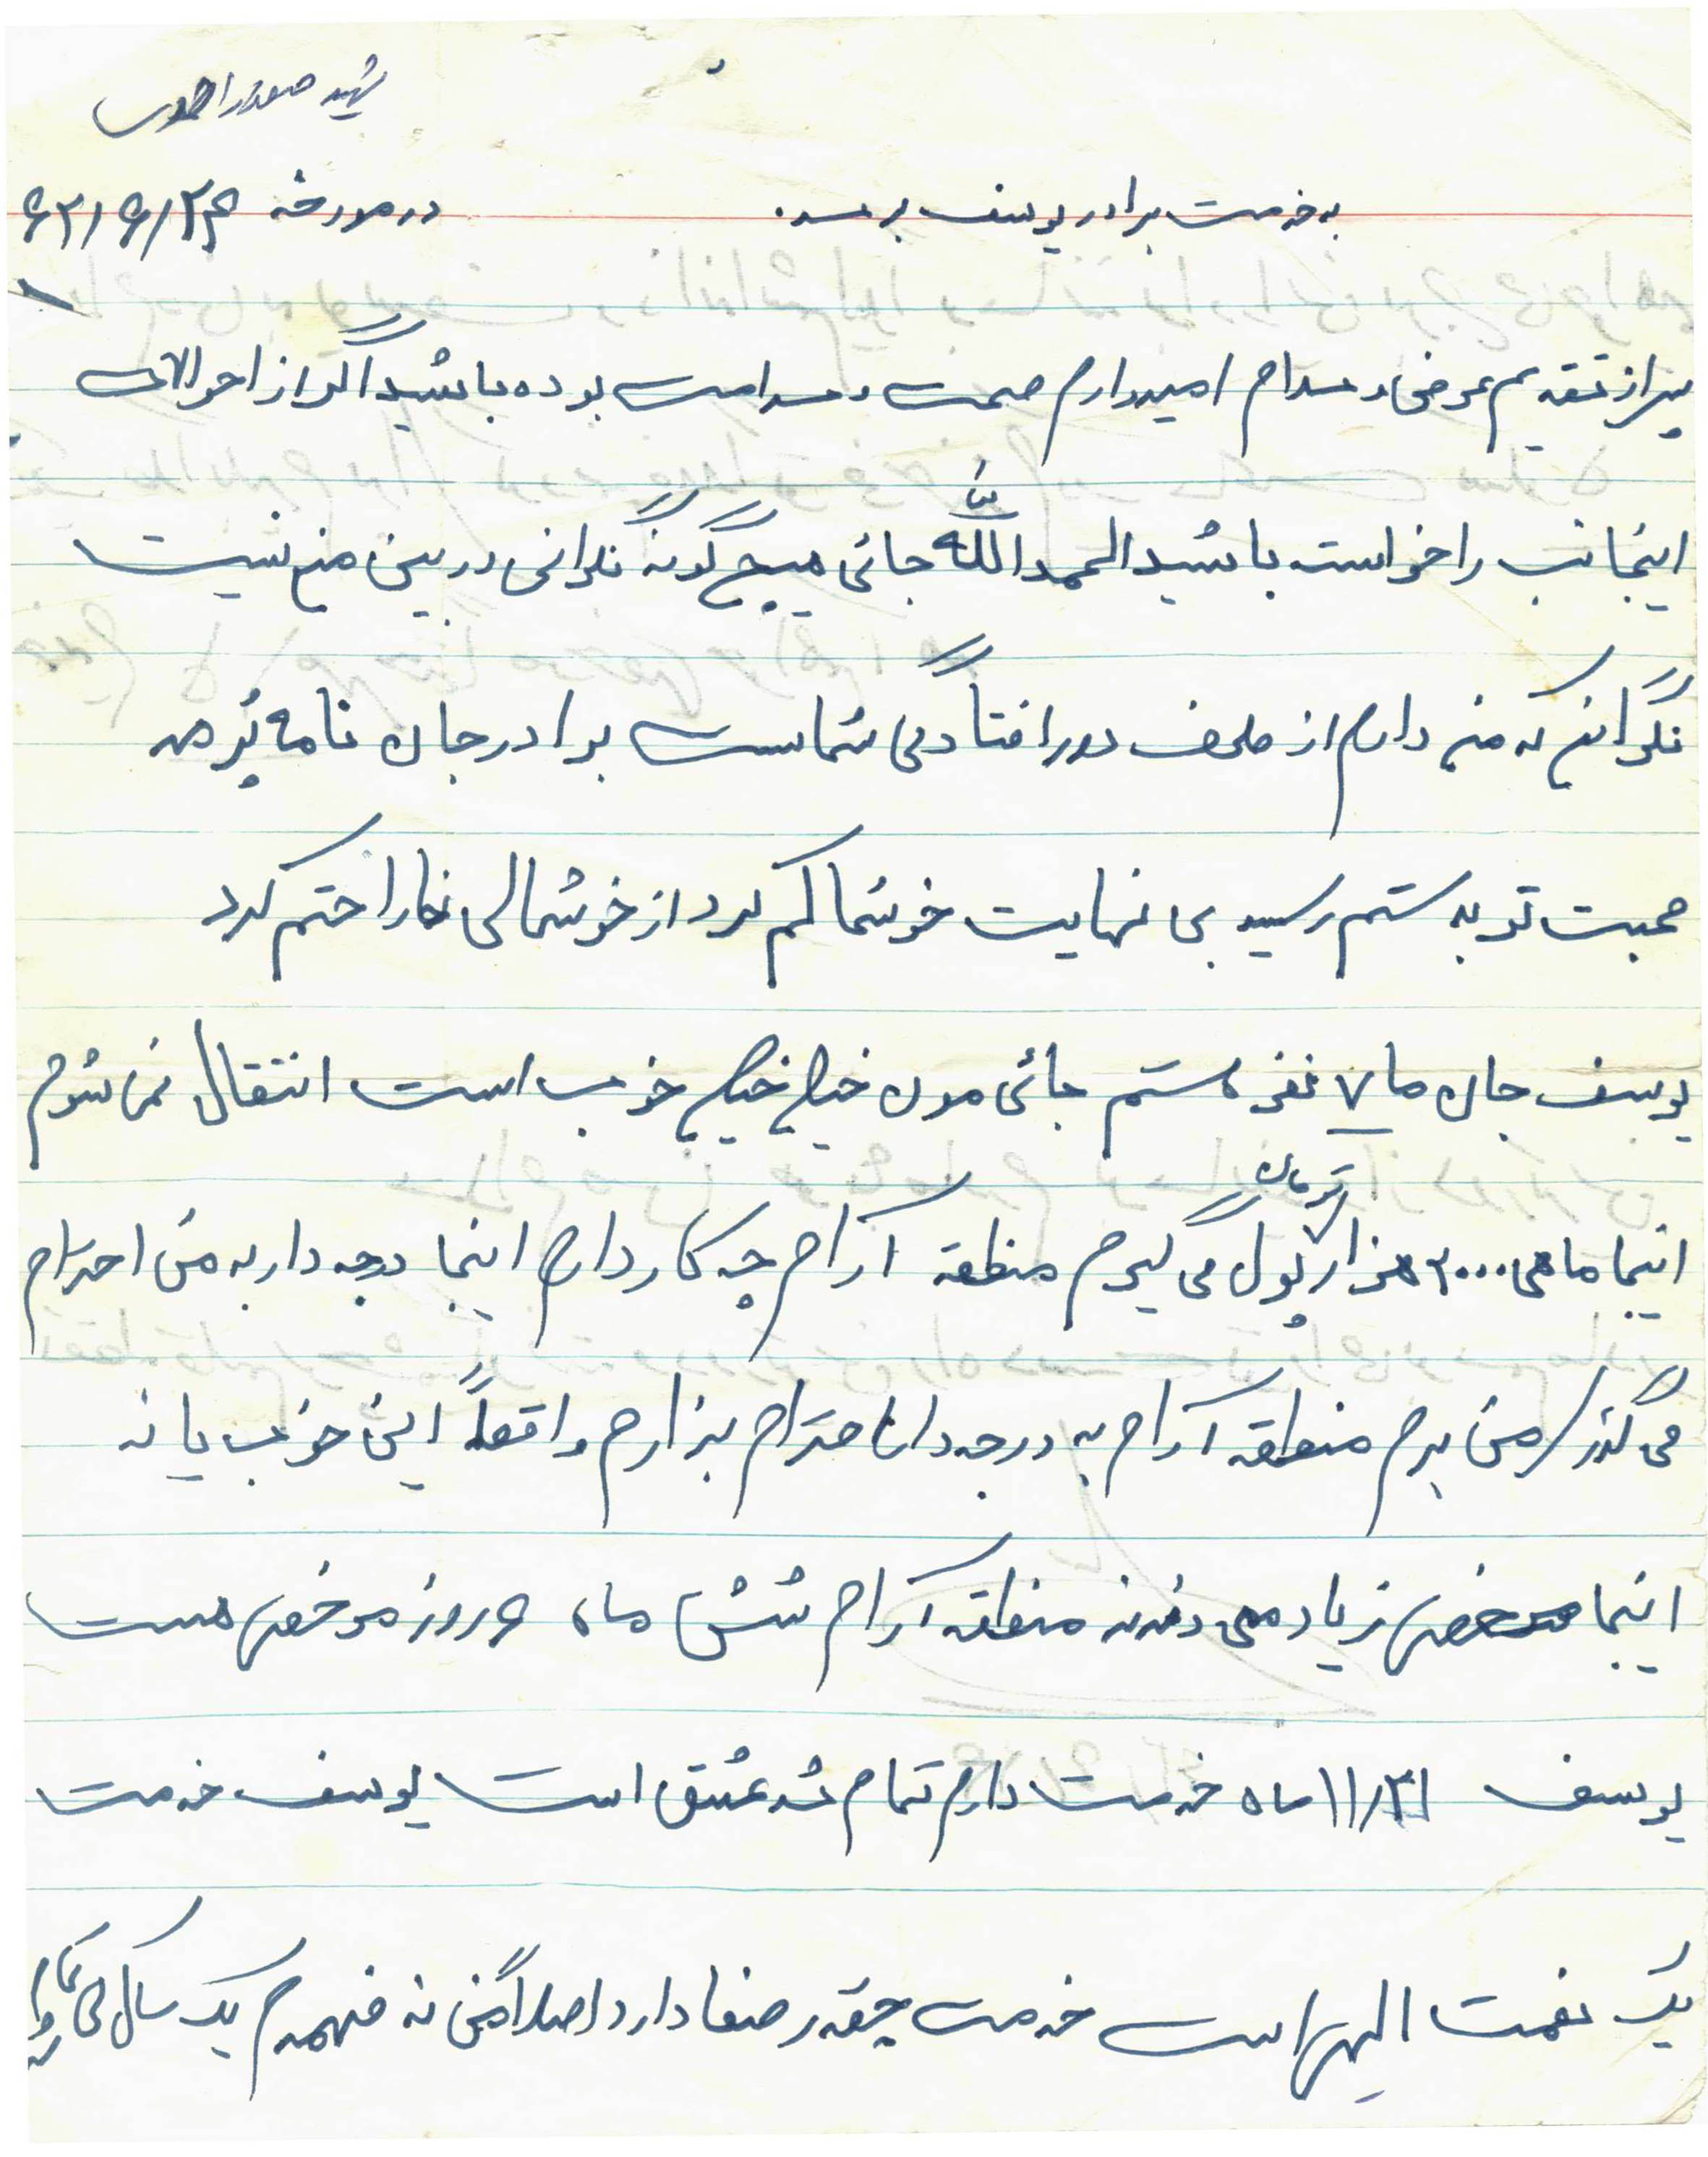 شهید صفدر احمدی
به خدمت برادر یوسف برسد. در مورخه
پس از تقدیم عرض و سلام امیدوارم صحت و سلامت بوده باشید اگر از احوالات
اینجانب را خواسته باشید الحمدالله جائی هیچ گونه نگرانی در بین من نیست
نگرانی که من دارم از طرف دور افتادگی شماست برادر جان نامه پُر مه
محبت تو به ستم رسید بی نهایت خوشحالم کرد از خوشحالی مارا ختم کرد
یوسف جان ما ۷ نفر هستم جائی مون خیلی خیلی خوب است انتقال نمی شوم
اینجا ماهی ۲۰۰۰ هزار تومان پول می گیرم منطقه آرام چه کار دارم اینجا درجه دار به من احترام
می گذارد من برم منطقه آرام به درجه دار احترام بزارم واقعاً این خوب یا نه
اینجا مرخصی زیاد می دهند منطقه آرام شش ماه ۵ روز مرخصی هست
یوسف ۱۱/۲۱ ماه خدمت دارم تمام شد عشق است یوسف خدمت
یک نعمت الهی است خدمت چقدر صفا دارد اصلاً من نه فهمیدم یک سال